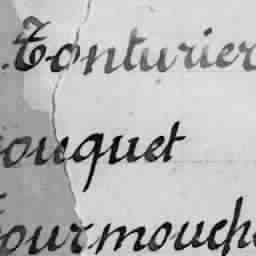 Tonturier
ouquet
ourmouche